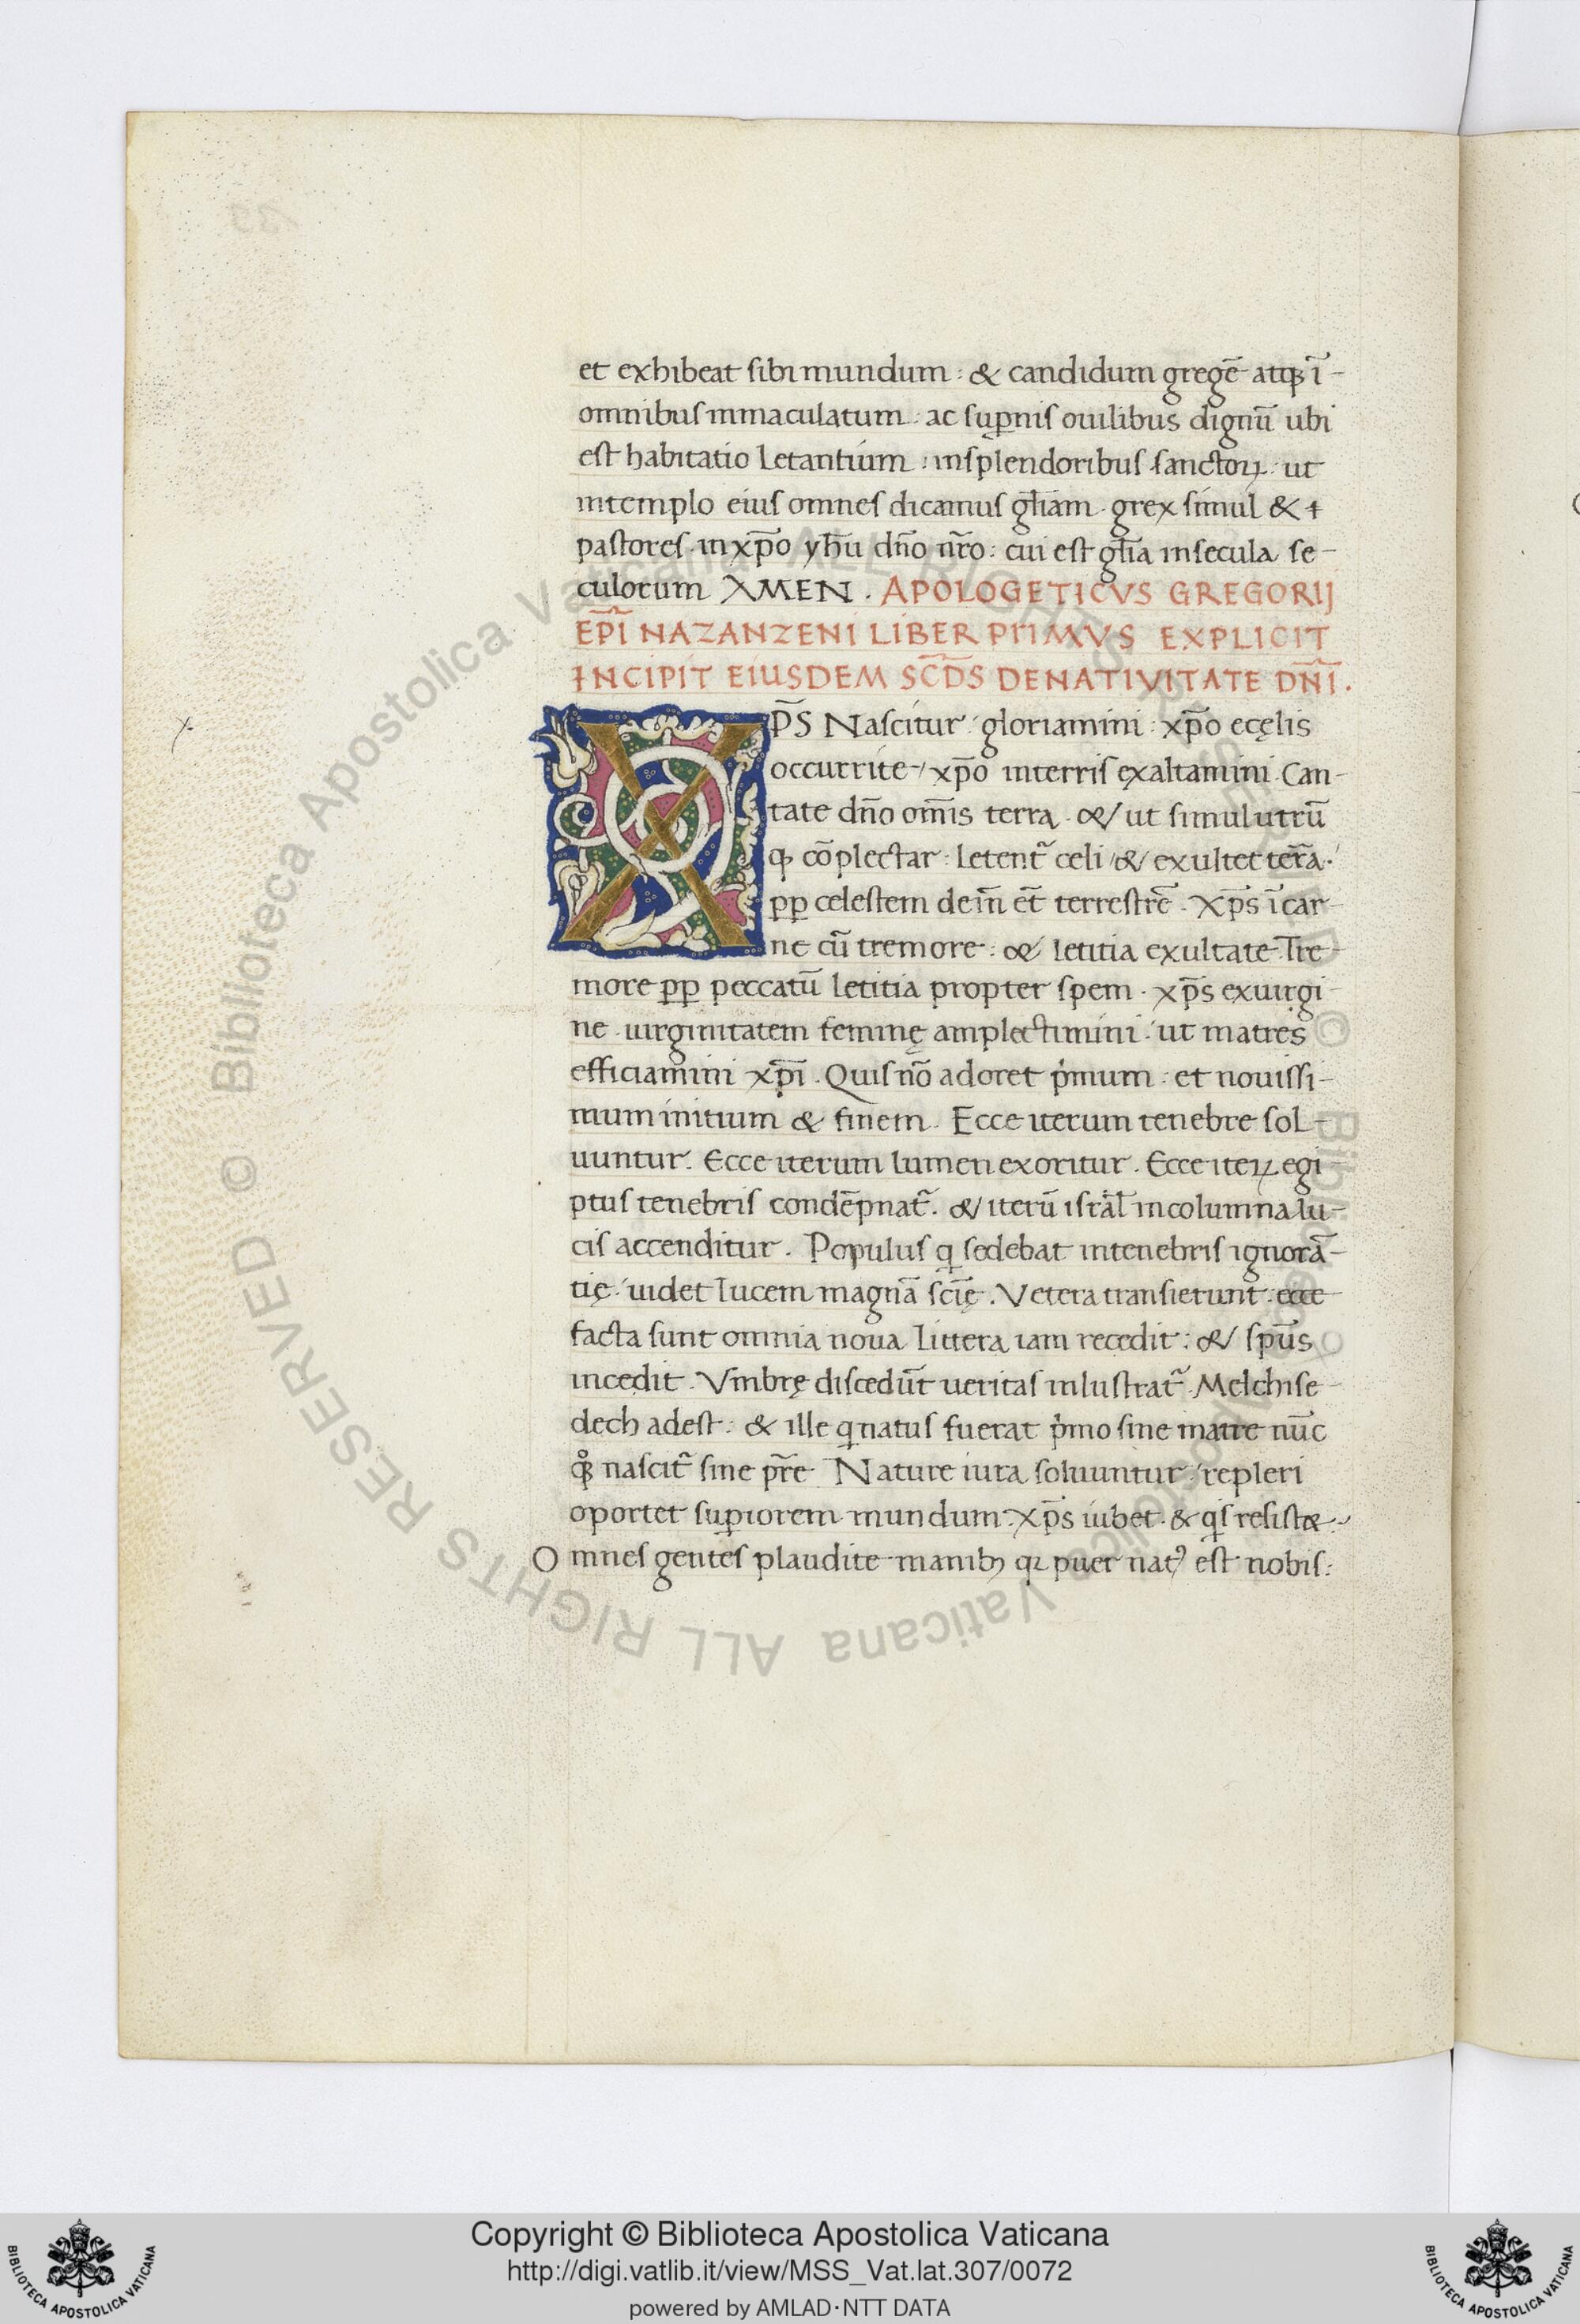 et exhibeat sibi mundum : & candidum gregē atqꝫ ī -
omnibus inmaculatum · ac suꝑnis ouilibus dignū ubi
est habitatio letantium : insplendoribus sanctoꝝ · ut
intemplo eius omnes dicamus gl̄iam · grex simul &
pastores · in xp̄o yh̄u dn̄o nr̄o : cui est gl̄ia insecula se -
culorum AMEN . APOLOGETICVS GREGORIJ
EP̄I NAZANZENI LIBER PRIMVS EXPLICIT
INCIPIT EIUSDEM SC̄DS DENATIVITATE DN̄I .
XP̄S Nascitur · gloriamini : xp̄o ecęlis
occurrite / xp̄o interris exaltamini · Can -
tate dn̄o om̄is terra · & ut simul utrū
qꝫ cōplectar : letent̃ celi / & exultet terr̄a ·
ꝓp celestem dein̄ et̄ terrestrē · Xp̄s īcar -
ne cū tremore : & letitia exultate · Tre -
more ꝓp peccatū letitia propter spem · xp̄s exuirgi -
ne · uirginitatem feminę amplectimini · ut matres
efficiamini xp̄i . Quis nō adoret pͥmum : et nouissi -
mum initium & finem . Ecce iterum tenebre sol -
uuntur . Ecce iterum lumen exoritur . Ecce iteꝝ egi -
ptus tenebris condēpnat̃ . & iterū isrāl incolumna lu -
cis accenditur . Populus q̄ sedebat intenebris ignorā -
tię · uidet lucem magnā scīę . Vetera transierunt : ecce
facta sunt omnia noua Littera iam recedit : & sp̄us
incedit . Vmbrę discedūt ueritas inlustrat̃ . Melchise -
dech adest : & ille qͥ natus fuerat pͥmo sine matre nūc
qꝫͦ nascit̃ sine pr̄e . Nature iura soluuntur · repleri
oportet suꝑiorem mundum : Xp̄s iubet · & qͥs resistæ
Omnes gentes plaudite manibꝫ qꝛ puer natꝰ est nobis :
Copyright © Biblioteca Apostolica Vaticana
http://digi.vatlib.it/view/MSS_Vat.lat.307/0072
powered by AMLAD·NTT DATA
BIBLIOTECA APOSTOLICA VATICANA
BIBLIOTECA APOSTOLICA VATICANA
© Biblioteca Apostolica Vaticana ALL RIGHTS RESERVED © Biblioteca Apostolica Vaticana ALL RIGHTS RESERVED